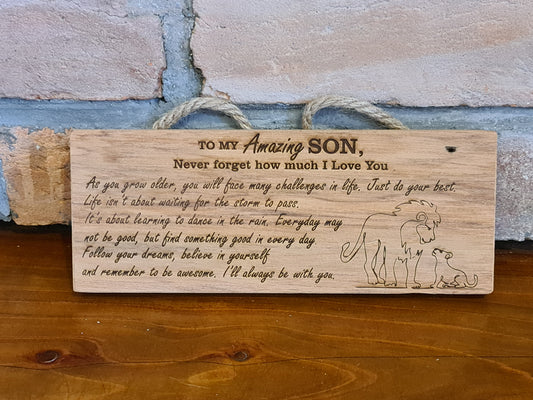 TO MY Amazing SON,
Never forget how much I Love You
As you grow older, you will face many challenges in life. Just do your best.
Life isn't about waiting for the storm to pass.
It's about learning to dance in the rain. Everyday may
not be good, but find something good in every day
Follow your dreams, believe in yourself
and remember to be awesome. I'll always be with you.